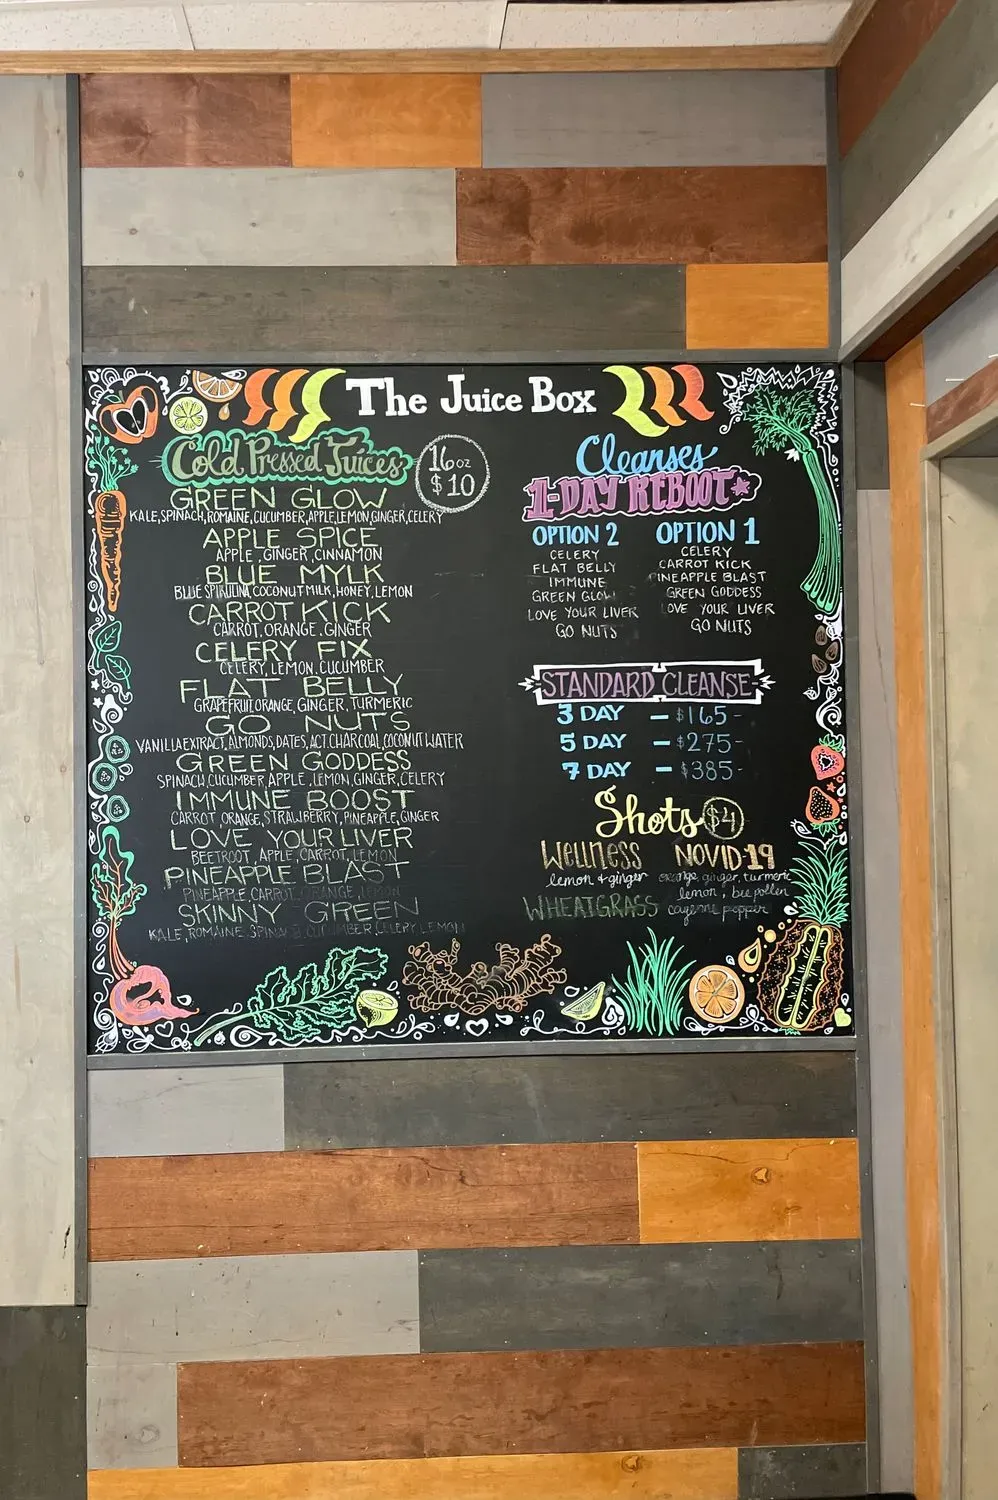 The Juice Box
Cold Pressed Juices
16 oz
$10
GREEN GLOW
KALE, SPINACH, ROMAINE, CUCUMBER, APPLE, LEMON, GINGER, CELERY
APPLE SPICE
APPLE, GINGER, CINNAMON
BLUE MYLK
BLUE SPIRULINA, COCONUT MILK, HONEY, LEMON
CARROT KICK
CARROT, ORANGE, GINGER
CELERY FIX
CELERY, LEMON, CUCUMBER
FLAT BELLY
GRAPEFRUIT, ORANGE, GINGER, TURMERIC
GO NUTS
VANILLA EXTRACT, ALMONDS, DATES, ACT. CHARCOAL, COCONUT WATER
GREEN GODDESS
SPINACH, CUCUMBER, APPLE, LEMON, GINGER, CELERY
IMMUNE BOOST
CARROT, ORANGE, STRAWBERRY, PINEAPPLE, GINGER
LOVE YOUR LIVER
BEETROOT, APPLE, CARROT, LEMON
PINEAPPLE BLAST
PINEAPPLE, CARROT, ORANGE, LEMON
SKINNY GREEN
KALE, ROMAINE, SPINACH, CUCUMBER, CELERY, LEMON
Cleanses
1-DAY REBOOT
OPTION 2
CELERY
FLAT BELLY
IMMUNE
GREEN GLOW
LOVE YOUR LIVER
GO NUTS
OPTION 1
CELERY
CARROT KICK
PINEAPPLE BLAST
GREEN GODDESS
LOVE YOUR LIVER
GO NUTS
STANDARD CLEANSE
3 DAY – $165-
5 DAY – $275-
7 DAY – $385-
Shots $4
WELLNESS
lemon + ginger
WHEATGRASS
NOVID-19
orange, ginger, turmeric
lemon, bee pollen
cayenne pepper